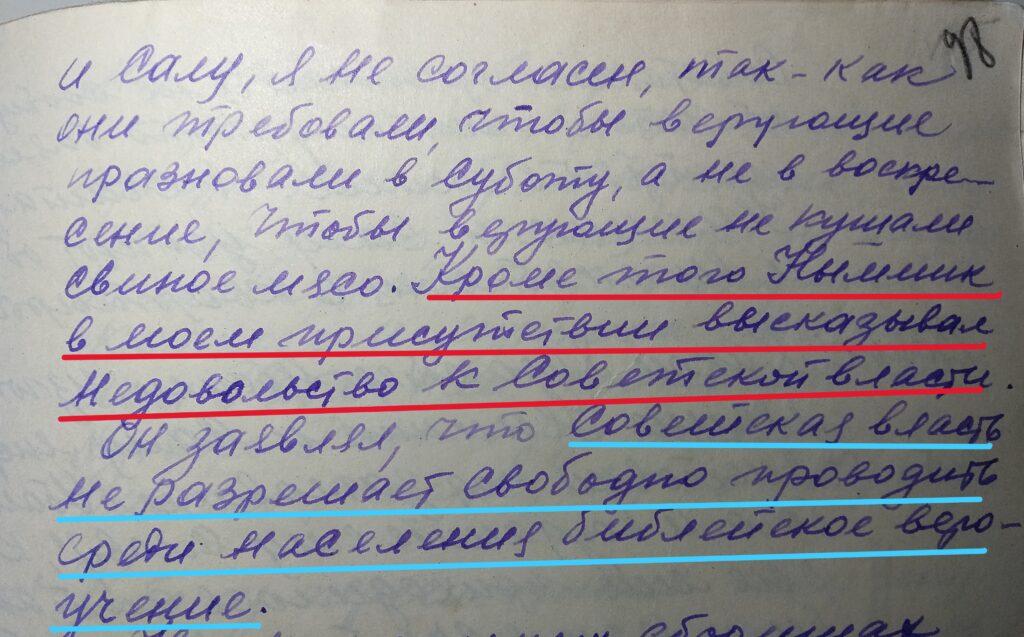 98
и Салу, я не согласен, так-как
они требовали, чтобы верующие
празновали в субботу, а не в воскре-
сение, чтобы верующие не кушали
свиное мясо. Кроме того Ныммик
в моем присутствии высказывал
недовольство к Советской власти.
Он заявлял, что Советская власть
не разрешает свободно проводить
среди населения библейское веро-
учение.
сборищах